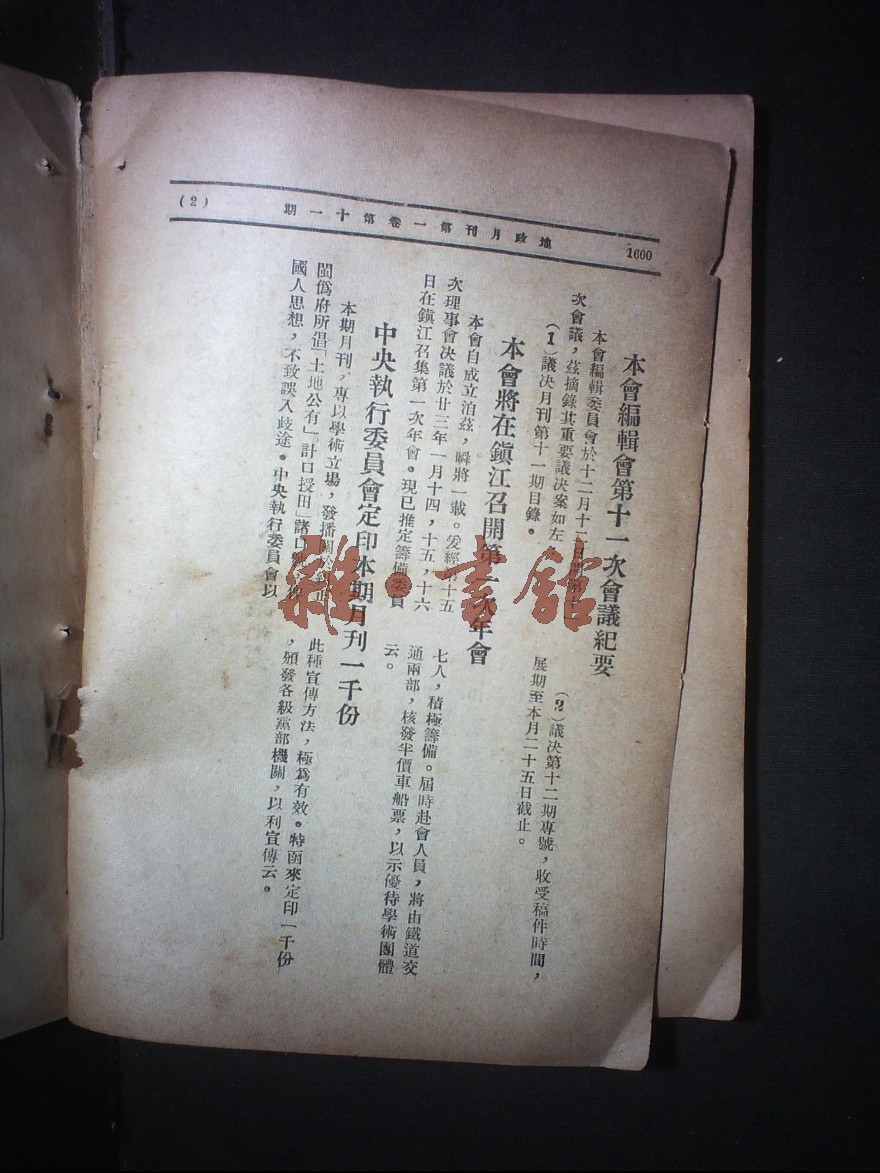 1600
地政月刊第一卷第十一期
(2)
本會編輯會第十一次會議紀要
本會編輯委員會於十二月十二日
次會議，茲摘錄其重要議決案如左
(1)議決月刊第十一期目錄。
(2)議決第十二期專號，收受稿件時間，
展期至本月二十五日截止。
本會將在鎭江召開第一次年會
本會自成立洎茲，瞬將一載。爰經第十五
次理事會決議於廿三年一月十四，十五，十六
日在鎭江召集第一次年會。現已推定籌備委員
七人，積極籌備。屆時赴會人員，將由鐵道交
通兩部，核發半價車船票，以示優待學術團體
云。
中央執行委員會定印本期月刊一千份
本期月刊，專以學術立場，發播關於糾正
閩僞府所倡「土地公有」「計口授田」諸口
國人思想，不致誤入歧途。中央執行委員會以
此種宣傳方法，極爲有效。特函來定印一千份
，頒發各級黨部機關，以利宣傳云。
雜·書館